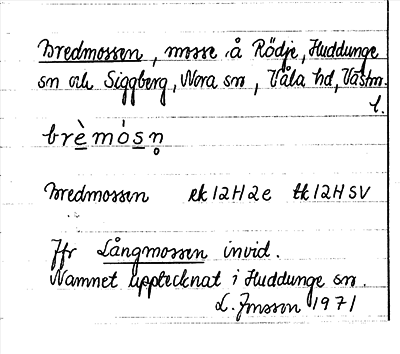 Bredmossen, mosse å Rödje, Huddunge
sn och Siggberg, Nora sn, Våla hd, Västm.
l.
brèmòsn̥
Bredmossen ek 12H2e tk 12HSV
Jfr Långmossen invid.
Namnet upptecknat i Huddunge sn.
L. Jonsson 1971